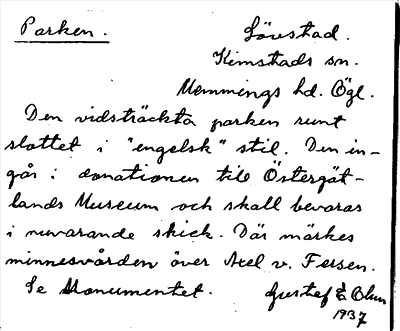 Parken.
Lövstad.
Kimstads sn.
Memmings hd. Ögl.
Den vidsträckta parken runt
slottet i "engelsk" stil. Den in-
går i donationen till Östergöt-
lands Museum och skall bevaras
i nuvarande skick. Där märkes
minnesvården över Axel v. Fersen.
Se Monumentet.
Gustef E Blum
1937